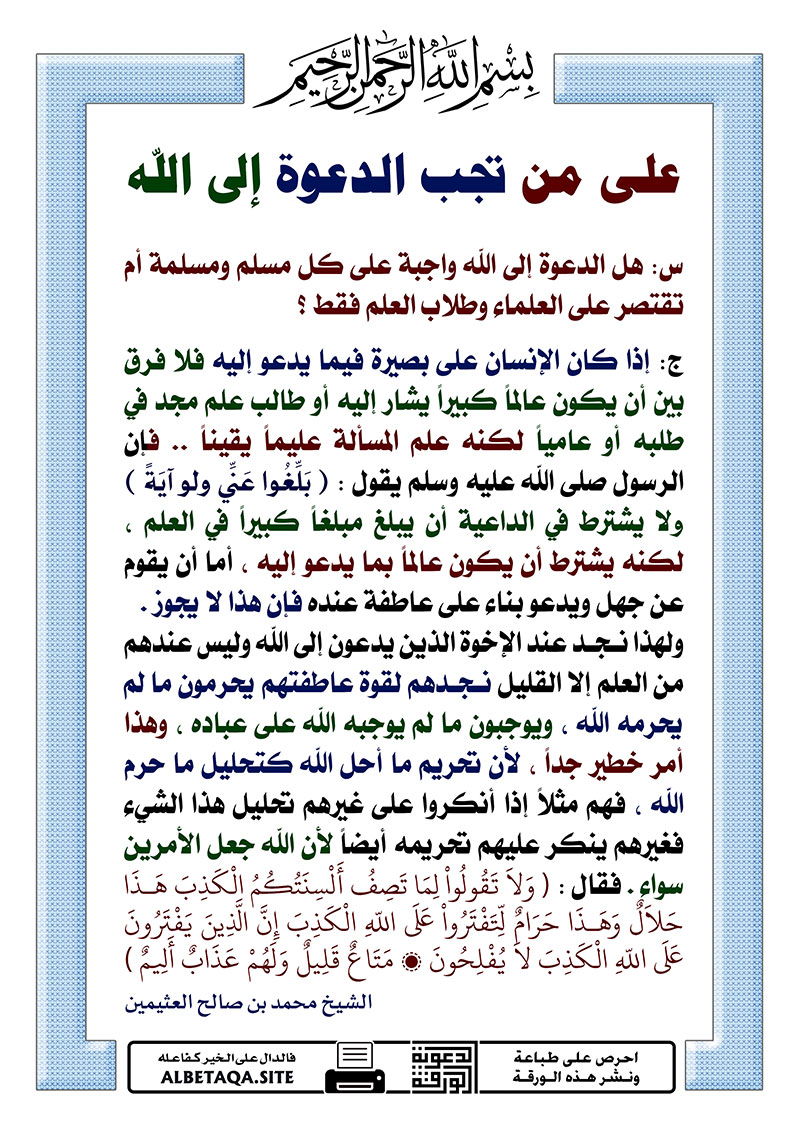 بِسْمِ اللَّهِ الرَّحْمَنِ الرَّحِيمِ
على من تجب الدعوة إلى الله
س: هل الدعوة إلى الله واجبة على كل مسلم ومسلمة أم
تقتصر على العلماء وطلاب العلم فقط ؟
ج: إذا كان الإنسان على بصيرة فيما يدعو إليه فلا فرق
بين أن يكون عالماً كبيراً يشار إليه أو طالب علم مجد في
طلبه أو عامياً لكنه علم المسألة عليماً يقيناً .. فإن
الرسول صلى الله عليه وسلم يقول : ( بَلِّغُوا عَنِّي ولو آيَةً )
ولا يشترط في الداعية أن يبلغ مبلغاً كبيراً في العلم ،
لكنه يشترط أن يكون عالماً بما يدعو إليه ، أما أن يقوم
عن جهل ويدعو بناء على عاطفة عنده فإن هذا لا يجوز .
ولهذا نـجـد عند الإخوة الذين يدعون إلى الله وليس عندهم
من العلم إلا القليل نـجـدهم لقوة عاطفتهم يحرمون ما لم
يحرمه الله ، ويوجبون ما لم يوجبه الله على عباده ، وهذا
أمر خطير جداً ، لأن تحريم ما أحل الله كتحليل ما حرم
الله ، فهم مثلاً إذا أنكروا على غيرهم تحليل هذا الشيء
فغيرهم ينكر عليهم تحريمه أيضاً لأن الله جعل الأمرين
سواء . فقال : ( وَلاَ تَقُولُواْ لِمَا تَصِفُ أَلْسِنَتُكُمُ الْكَذِبَ هَـذَا
حَلاَلٌ وَهَـذَا حَرَامٌ لِّتَفْتَرُواْ عَلَى اللّهِ الْكَذِبَ إِنَّ الَّذِينَ يَفْتَرُونَ
عَلَى اللّهِ الْكَذِبَ لاَ يُفْلِحُونَ ۞ مَتَاعٌ قَلِيلٌ وَلَهُمْ عَذَابٌ أَلِيمٌ )
الشيخ محمد بن صالح العثيمين
احرص على طباعة
ونشر هذه الورقة
الورقة الدعوية
فالدال على الخير كفاعله
ALBETAQA.SITE